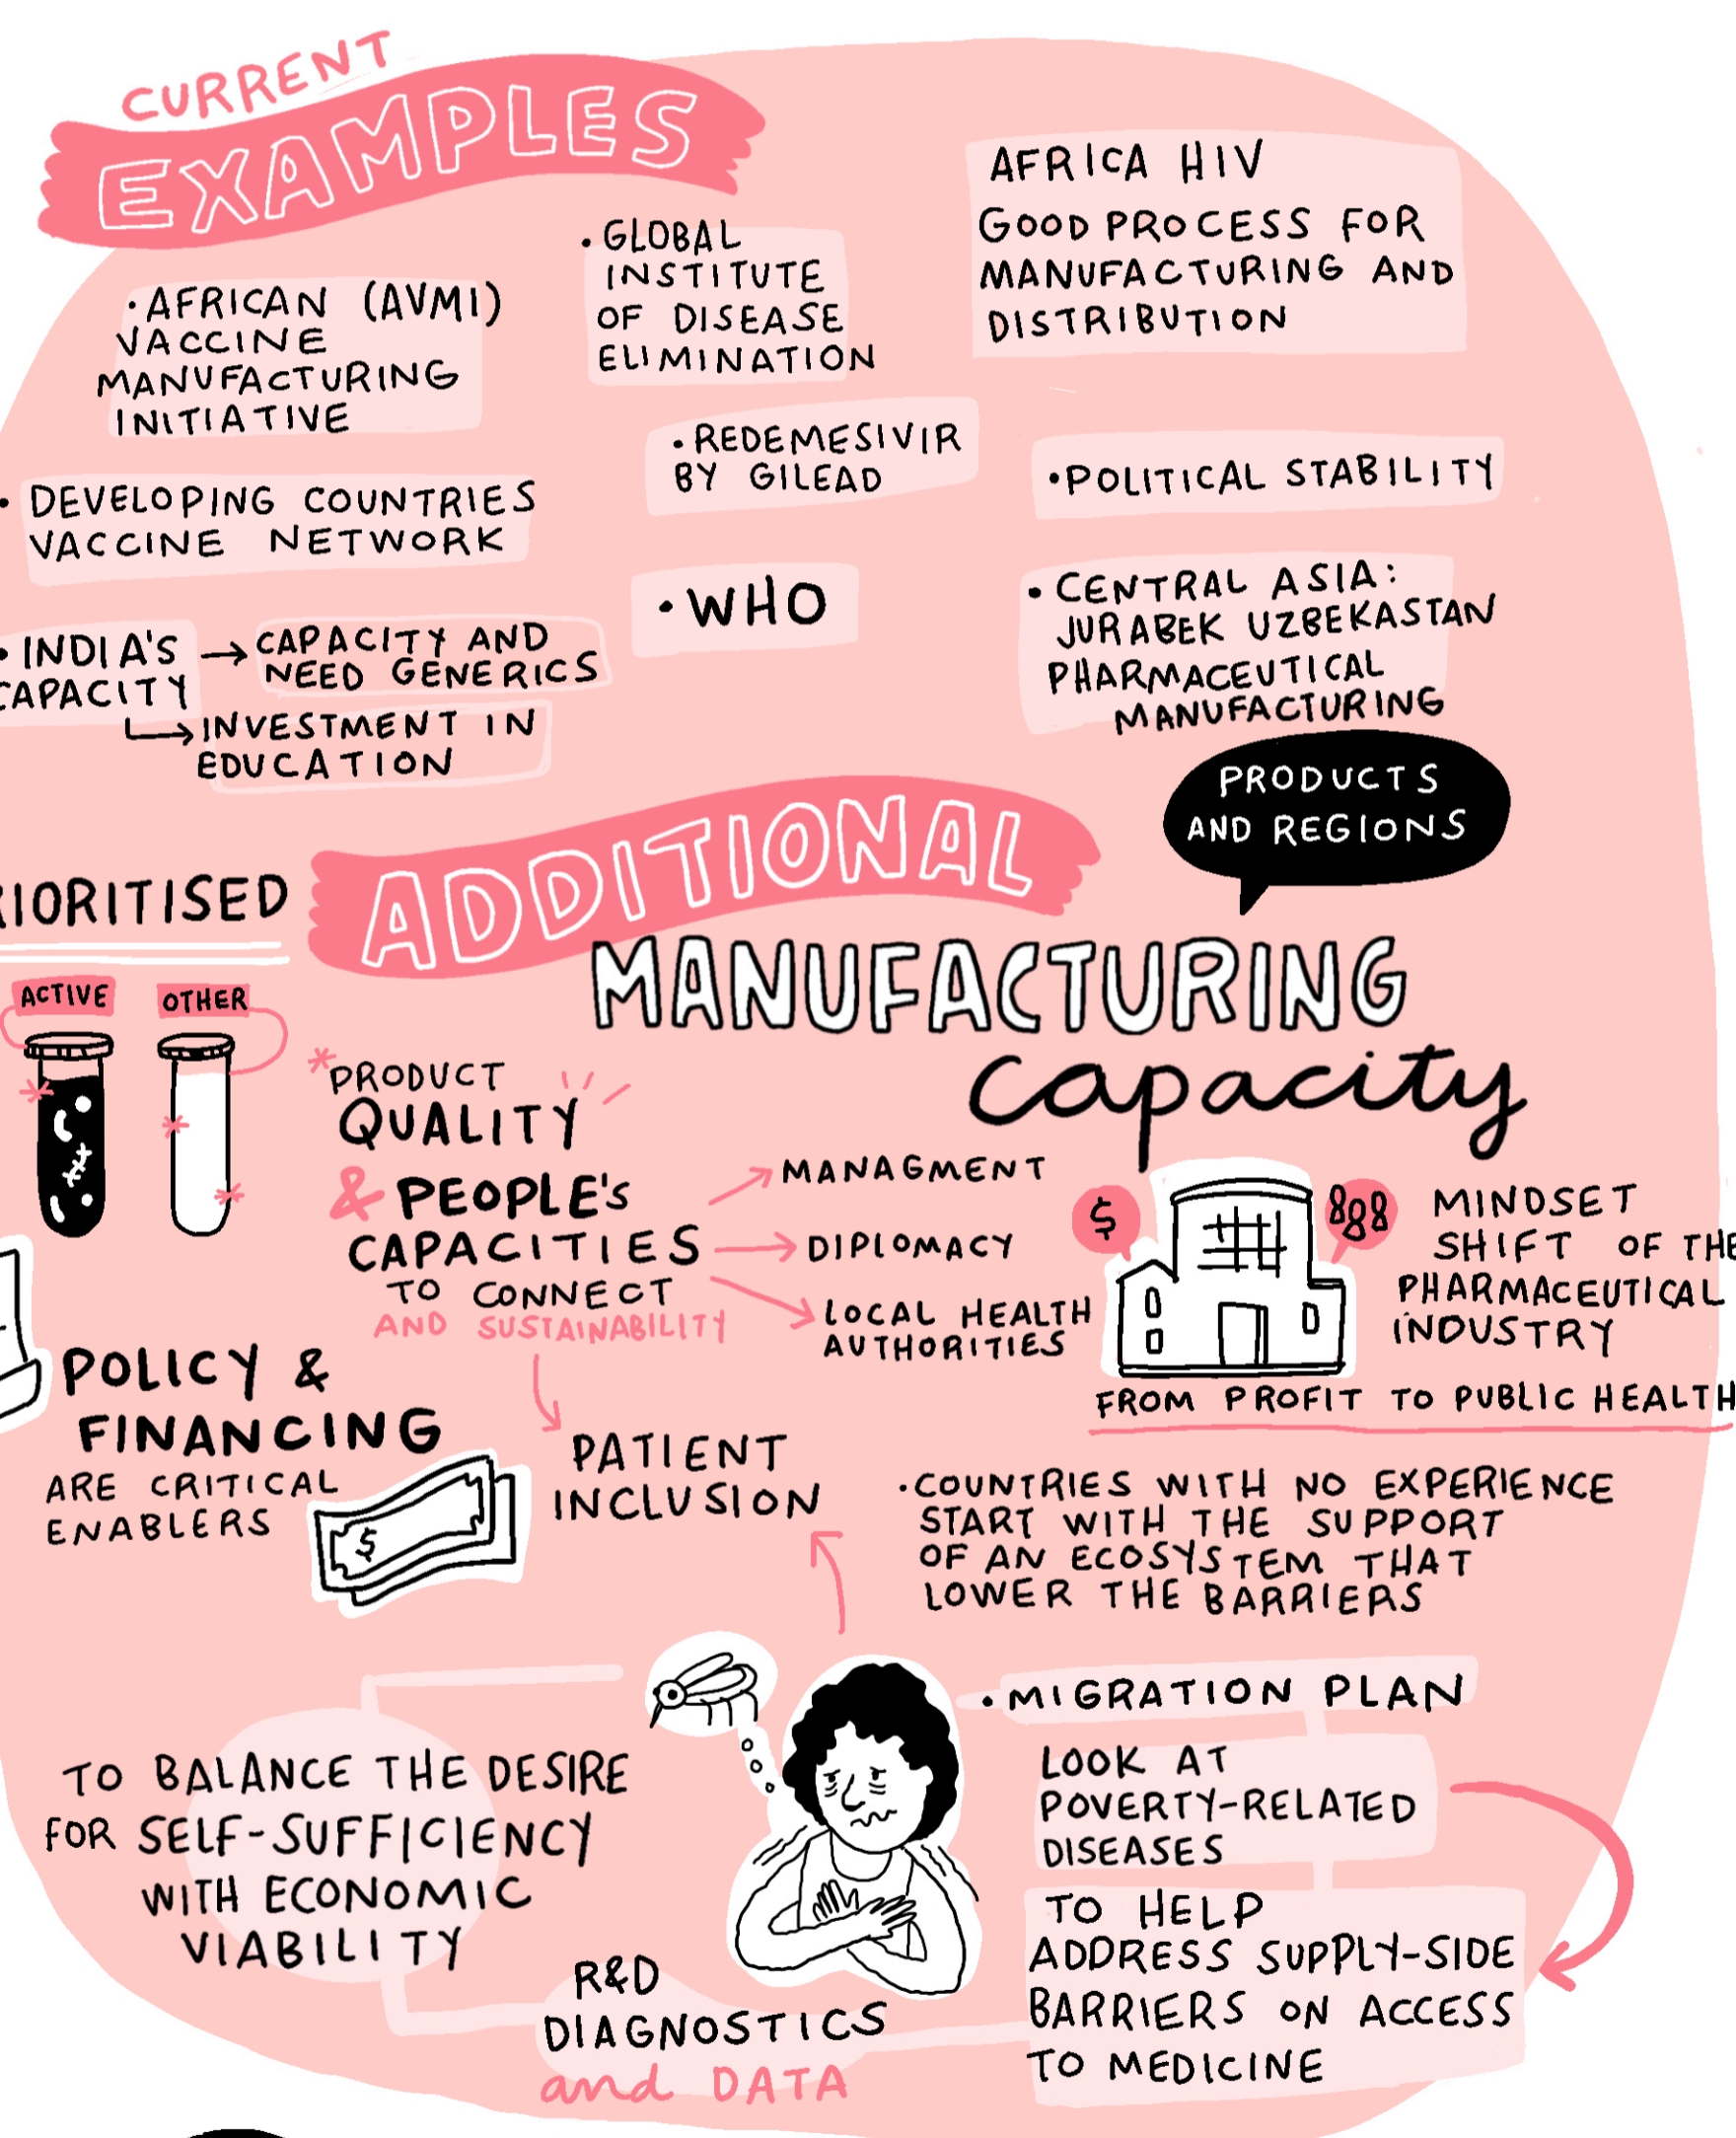 CURRENT
EXAMPLES
• AFRICAN (AVMI)
VACCINE
MANUFACTURING
INITIATIVE
• GLOBAL
INSTITUTE
OF DISEASE
ELIMINATION
AFRICA HIV
GOOD PROCESS FOR
MANUFACTURING AND
DISTRIBUTION
• DEVELOPING COUNTRIES
VACCINE NETWORK
• REDEMESIVIR
BY GILEAD
• POLITICAL STABILITY
• INDIA'S
CAPACITY
→ CAPACITY AND
NEED GENERICS
→ INVESTMENT IN
EDUCATION
• WHO
• CENTRAL ASIA:
JURABEK UZBEKASTAN
PHARMACEUTICAL
MANUFACTURING
PRODUCTS
AND REGIONS
RIORITISED
ADDITIONAL
MANUFACTURING
Capacity
ACTIVE
OTHER
* PRODUCT
QUALITY
& PEOPLE'S
CAPACITIES
TO CONNECT
AND SUSTAINABILITY
→ MANAGMENT
→ DIPLOMACY
→ LOCAL HEALTH
AUTHORITIES
$
MINDSET
SHIFT OF THE
PHARMACEUTICAL
INDUSTRY
FROM PROFIT TO PUBLIC HEALTH
POLICY &
FINANCING
ARE CRITICAL
ENABLERS
$
PATIENT
INCLUSION
• COUNTRIES WITH NO EXPERIENCE
START WITH THE SUPPORT
OF AN ECOSYSTEM THAT
LOWER THE BARRIERS
• MIGRATION PLAN
LOOK AT
POVERTY-RELATED
DISEASES
TO HELP
ADDRESS SUPPLY-SIDE
BARRIERS ON ACCESS
TO MEDICINE
TO BALANCE THE DESIRE
FOR SELF-SUFFICIENCY
WITH ECONOMIC
VIABILITY
R&D
DIAGNOSTICS
and DATA